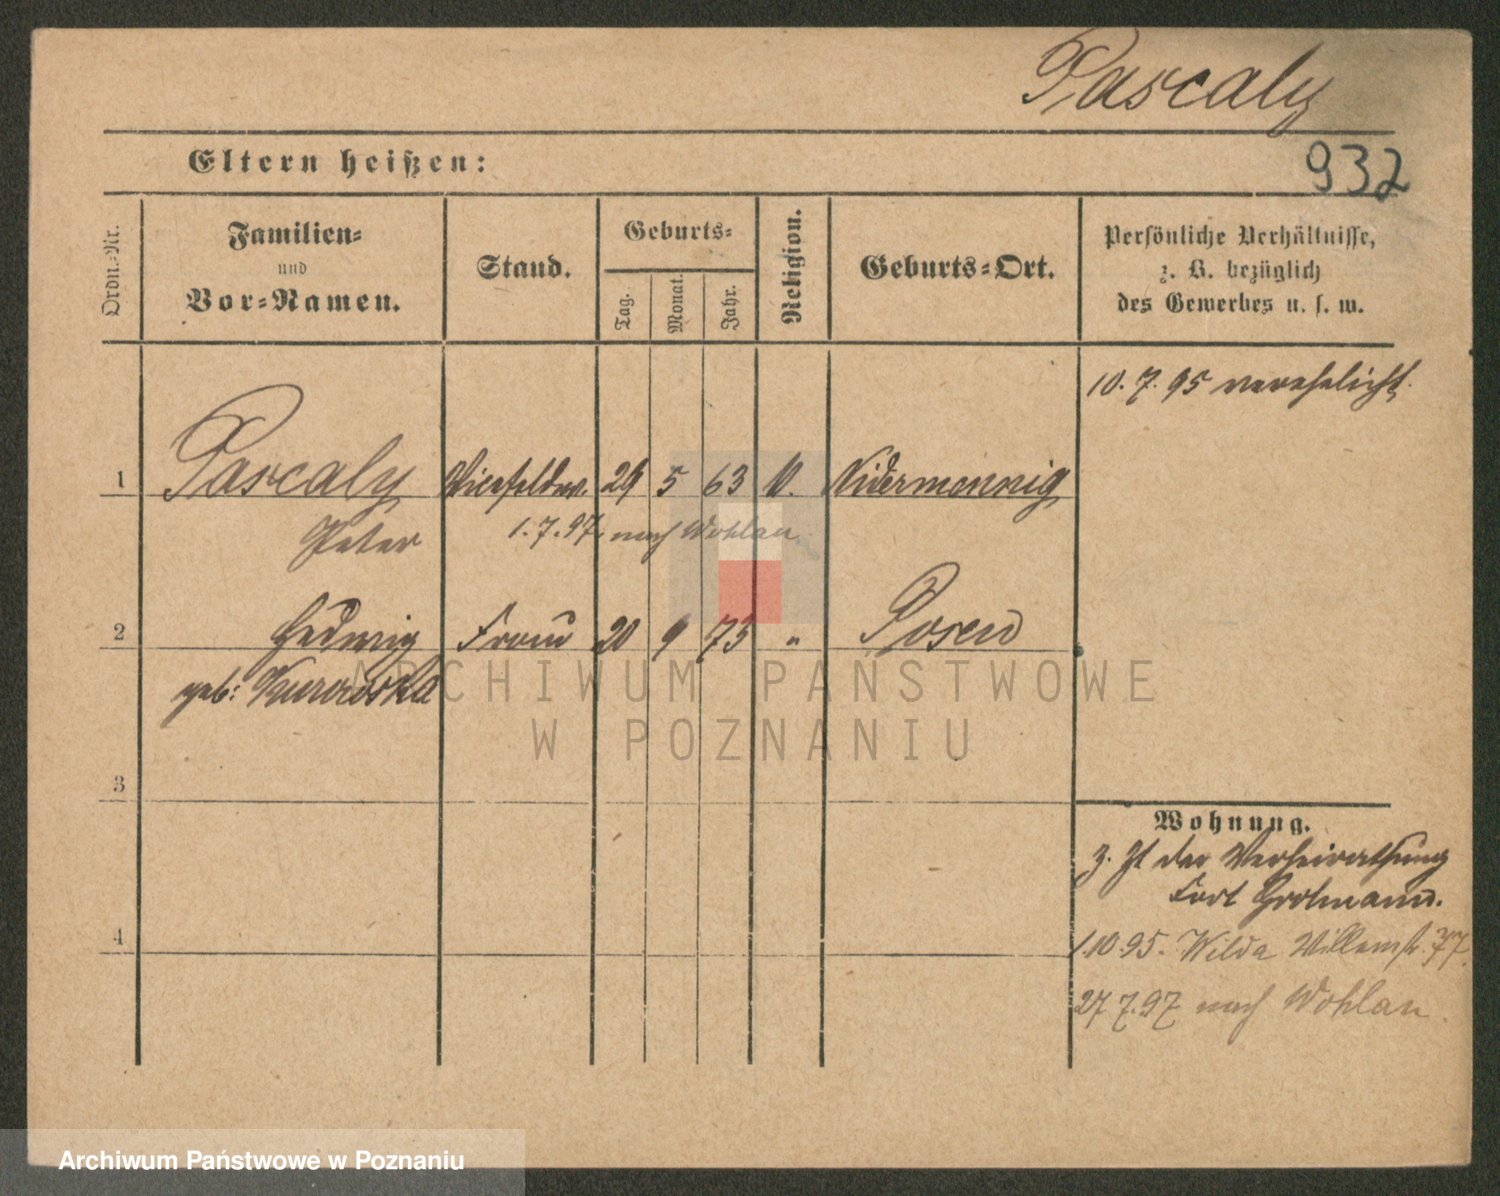 Pascaly
932
Eltern heißen:
Ordn.-Nr.
Familien-
und
Vor-Namen.
Stand.
Geburts-
Tag.
Monat.
Jahr.
Religion.
Geburts-Ort.
Persönliche Verhältnisse,
z. B. bezüglich
des Gewerbes u. s. w.
10. 7. 95 verehelicht.
1 Pascaly Vicefeldw. 29 5 63 Nidermennig
Peter 1. 7. 97. nach Wohlau.
2 Hedwig Frau 20 9 73 " Posen
geb: Kurowska
3
4
Wohnung.
z. Zt der Verheirathung
Fort Grolmann.
1.10.95. Wilda Willemstr. 77.
27 7. 97 nach Wohlau.
ARCHIWUM PAŃSTWOWE
W POZNANIU
Archiwum Państwowe w Poznaniu